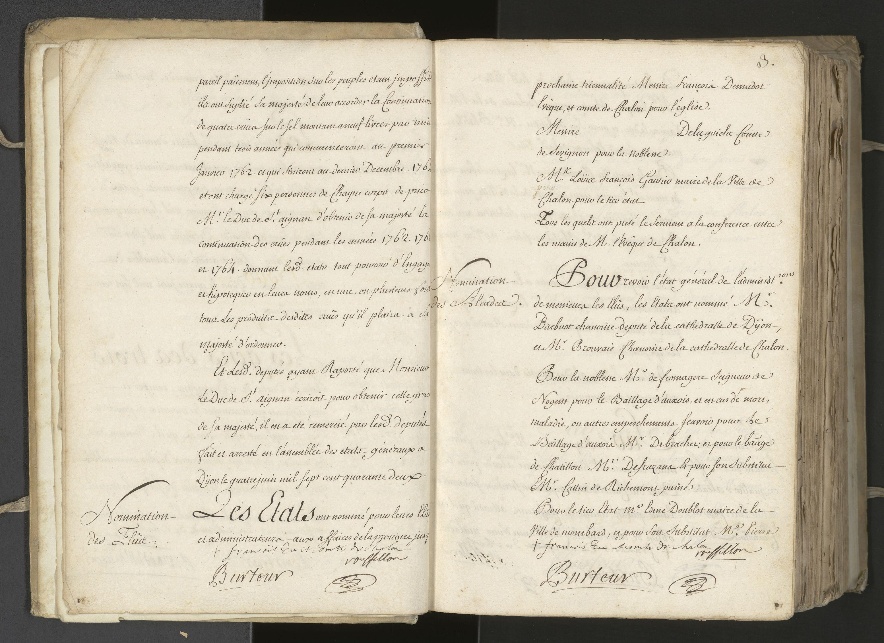 pareil paiement, l'imposition sur les peuples etans
ils ont suplié sa majesté de leur accorder la Continuation
de quatre crües sur le sel montant a neuf livres par mui
pendant trois années qui commenceront au premier
Janvier 1762 et qui finiront au dernier Decembre 176
et ont chargé six personnes de chaque corps de prier
M.r le Duc de S.t aignan d'obtenir de sa majesté la
continuation des crües pendant les années 1762. 176
et 1764. donnant lesd. etats tout pouvoir d'engager
et hÿpotequer en leurs noms, en une, ou plusieurs fois
tous les produits desdittes crües qu'il plaira a sa
majesté d'ordonner.
Et Lesd. deputés ayant Raporté que Monsieur
Le Duc de S.t aignan ecriroit pour obtenir cette grace
de sa majesté, il en a eté remercié par lesd. deputés
fait et arresté en l'assemblée des etats, generaux a
Dijon le quatre juin mil sept cent quarante deux
Nomination
des Elus.
Les Etats ont nommé pour leurs Elus
et administrateurs, aux affaires de la province,
+ francois Ev. et Comte de Chalon
rouffillon
Burteur
58.
prochaine triennalité Messire François Demadot
Evêque, et comte de Chalon pour l'église.
Messire Delaguiche Comte
de Sevignon pour la noblesse
M.re Loüis François Gauthier maire de la Ville de
Chalon, pour le tiers état
Tous lesquels ont prété le Serment a la conference entre
les mains de M. l'évêque de Chalon.
Nomination
des Alcades.
Pour revoir l'état général de l'administ.ron
de messieurs les Elus, les Etats ont nommé M.r
Darbuot chanoine deputé de la cathedralle de Dijon,
et M.r Brouvais Chanoine de la cathedralle de Chalon.
Pour la noblesse M.r de fromagere Seigneur de
Nogent pour le Baillage d'auxois, et en cas de mort,
maladie, ou autres empechements pour le
Baillage d'auxois M.r Debrachet, et pour le bailage
de Chatillon M.r et pour son substitut
M.r de Richemont puiné
Pour le tiers état m.r Doublot maire de la
Ville de montbard, et pour son Substitut, M.r Pierre
+ francois Ev. et Comte de Chalon
rouffillon
Burteur